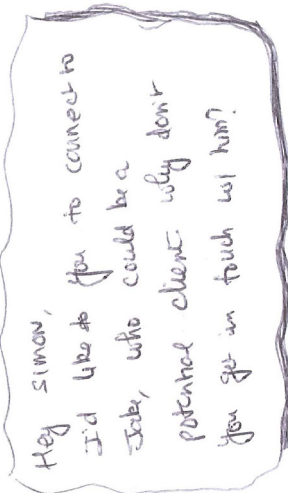 Hey Simon,
I'd like to you to connect to
Jake, who could be a
potential client. why don't
you get in touch w/ him?